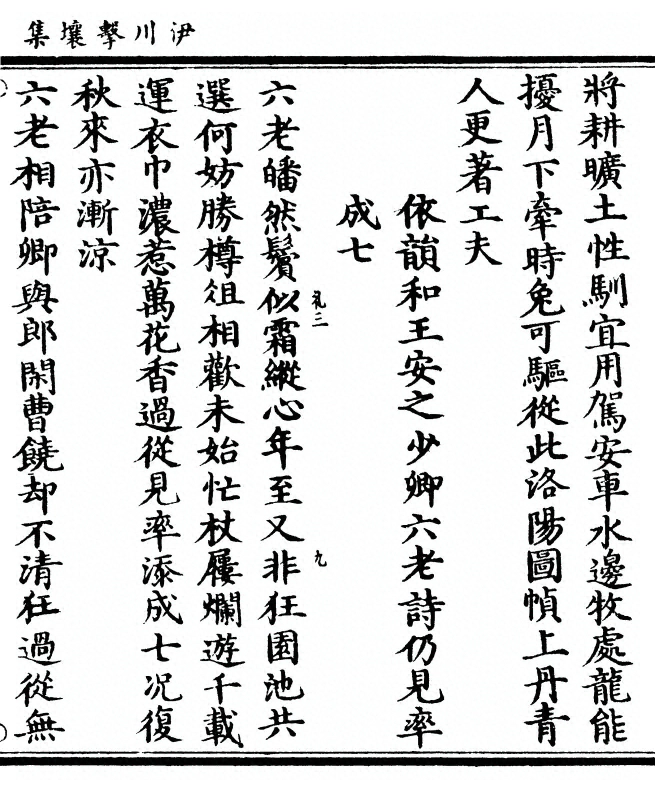 伊川擊壤集
將耕曠土性馴宜用駕安車水邊牧處龍能
擾月下牽時兔可驅從此洛陽圖幀上丹青
人更著工夫
依韻和王安之少卿六老詩仍見率
成七
礼三
九
六老皤然鬢似霜縱心年至又非狂園池共
選何妨勝樽俎相歡未始忙杖屨爛遊千載
運衣巾濃惹萬花香過從見率添成七况復
秋來亦漸涼
六老相陪卿與郎閑曹饒却不清狂過從無